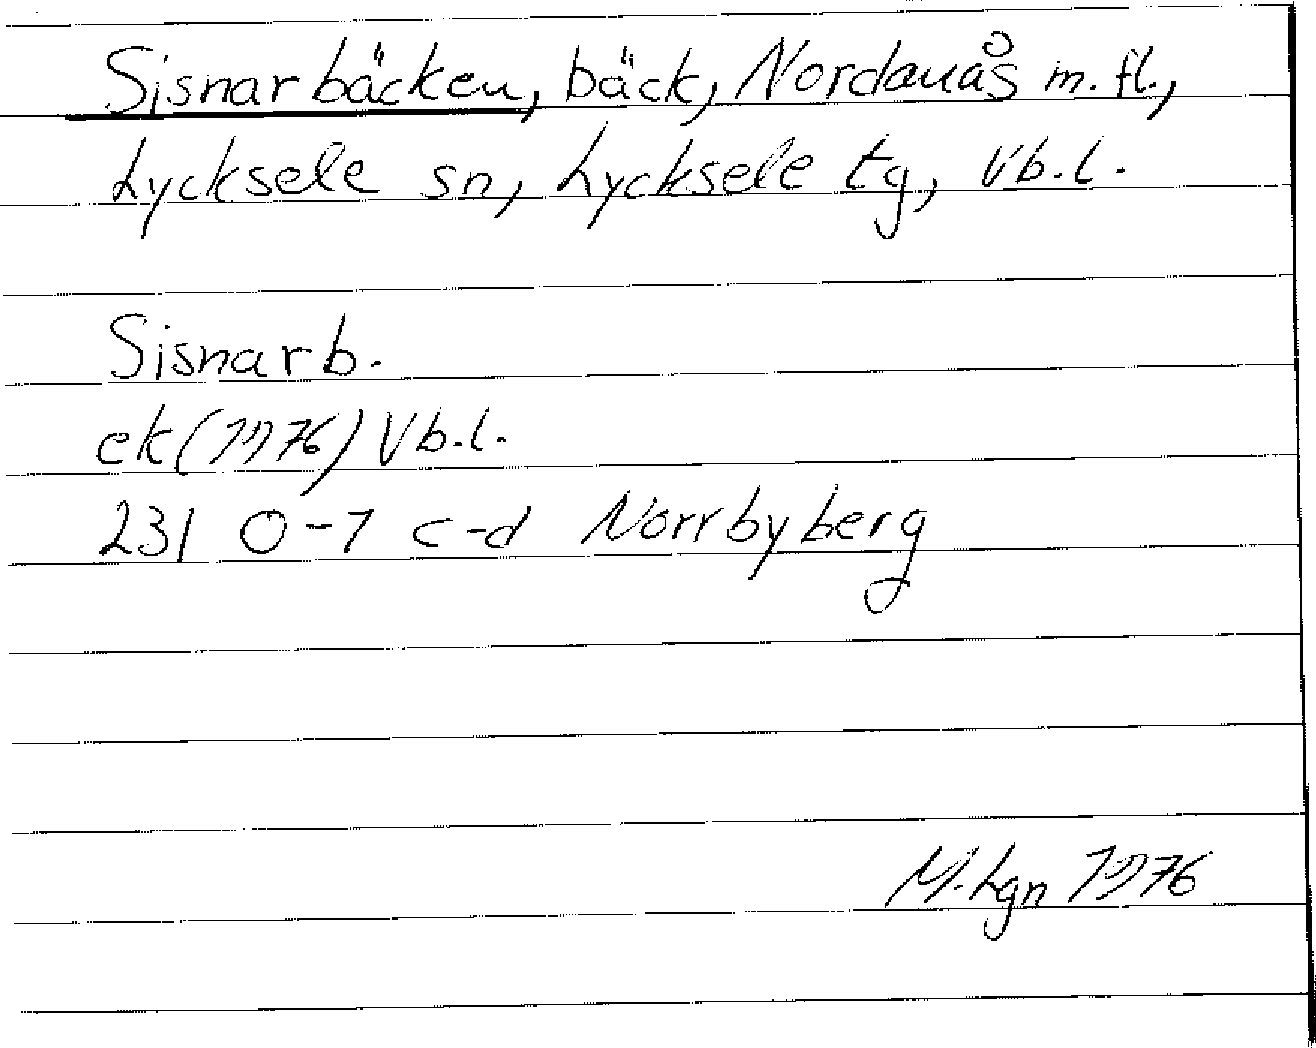 Sisnarbäcken, bäck, Nordanås m.fl.,
Lycksele sn, Lycksele tg, Vb.l.
Sisnarb.
ek(1976) Vb.l.
231 0-1 c-d Norrbyberg
M.Lgn 1976